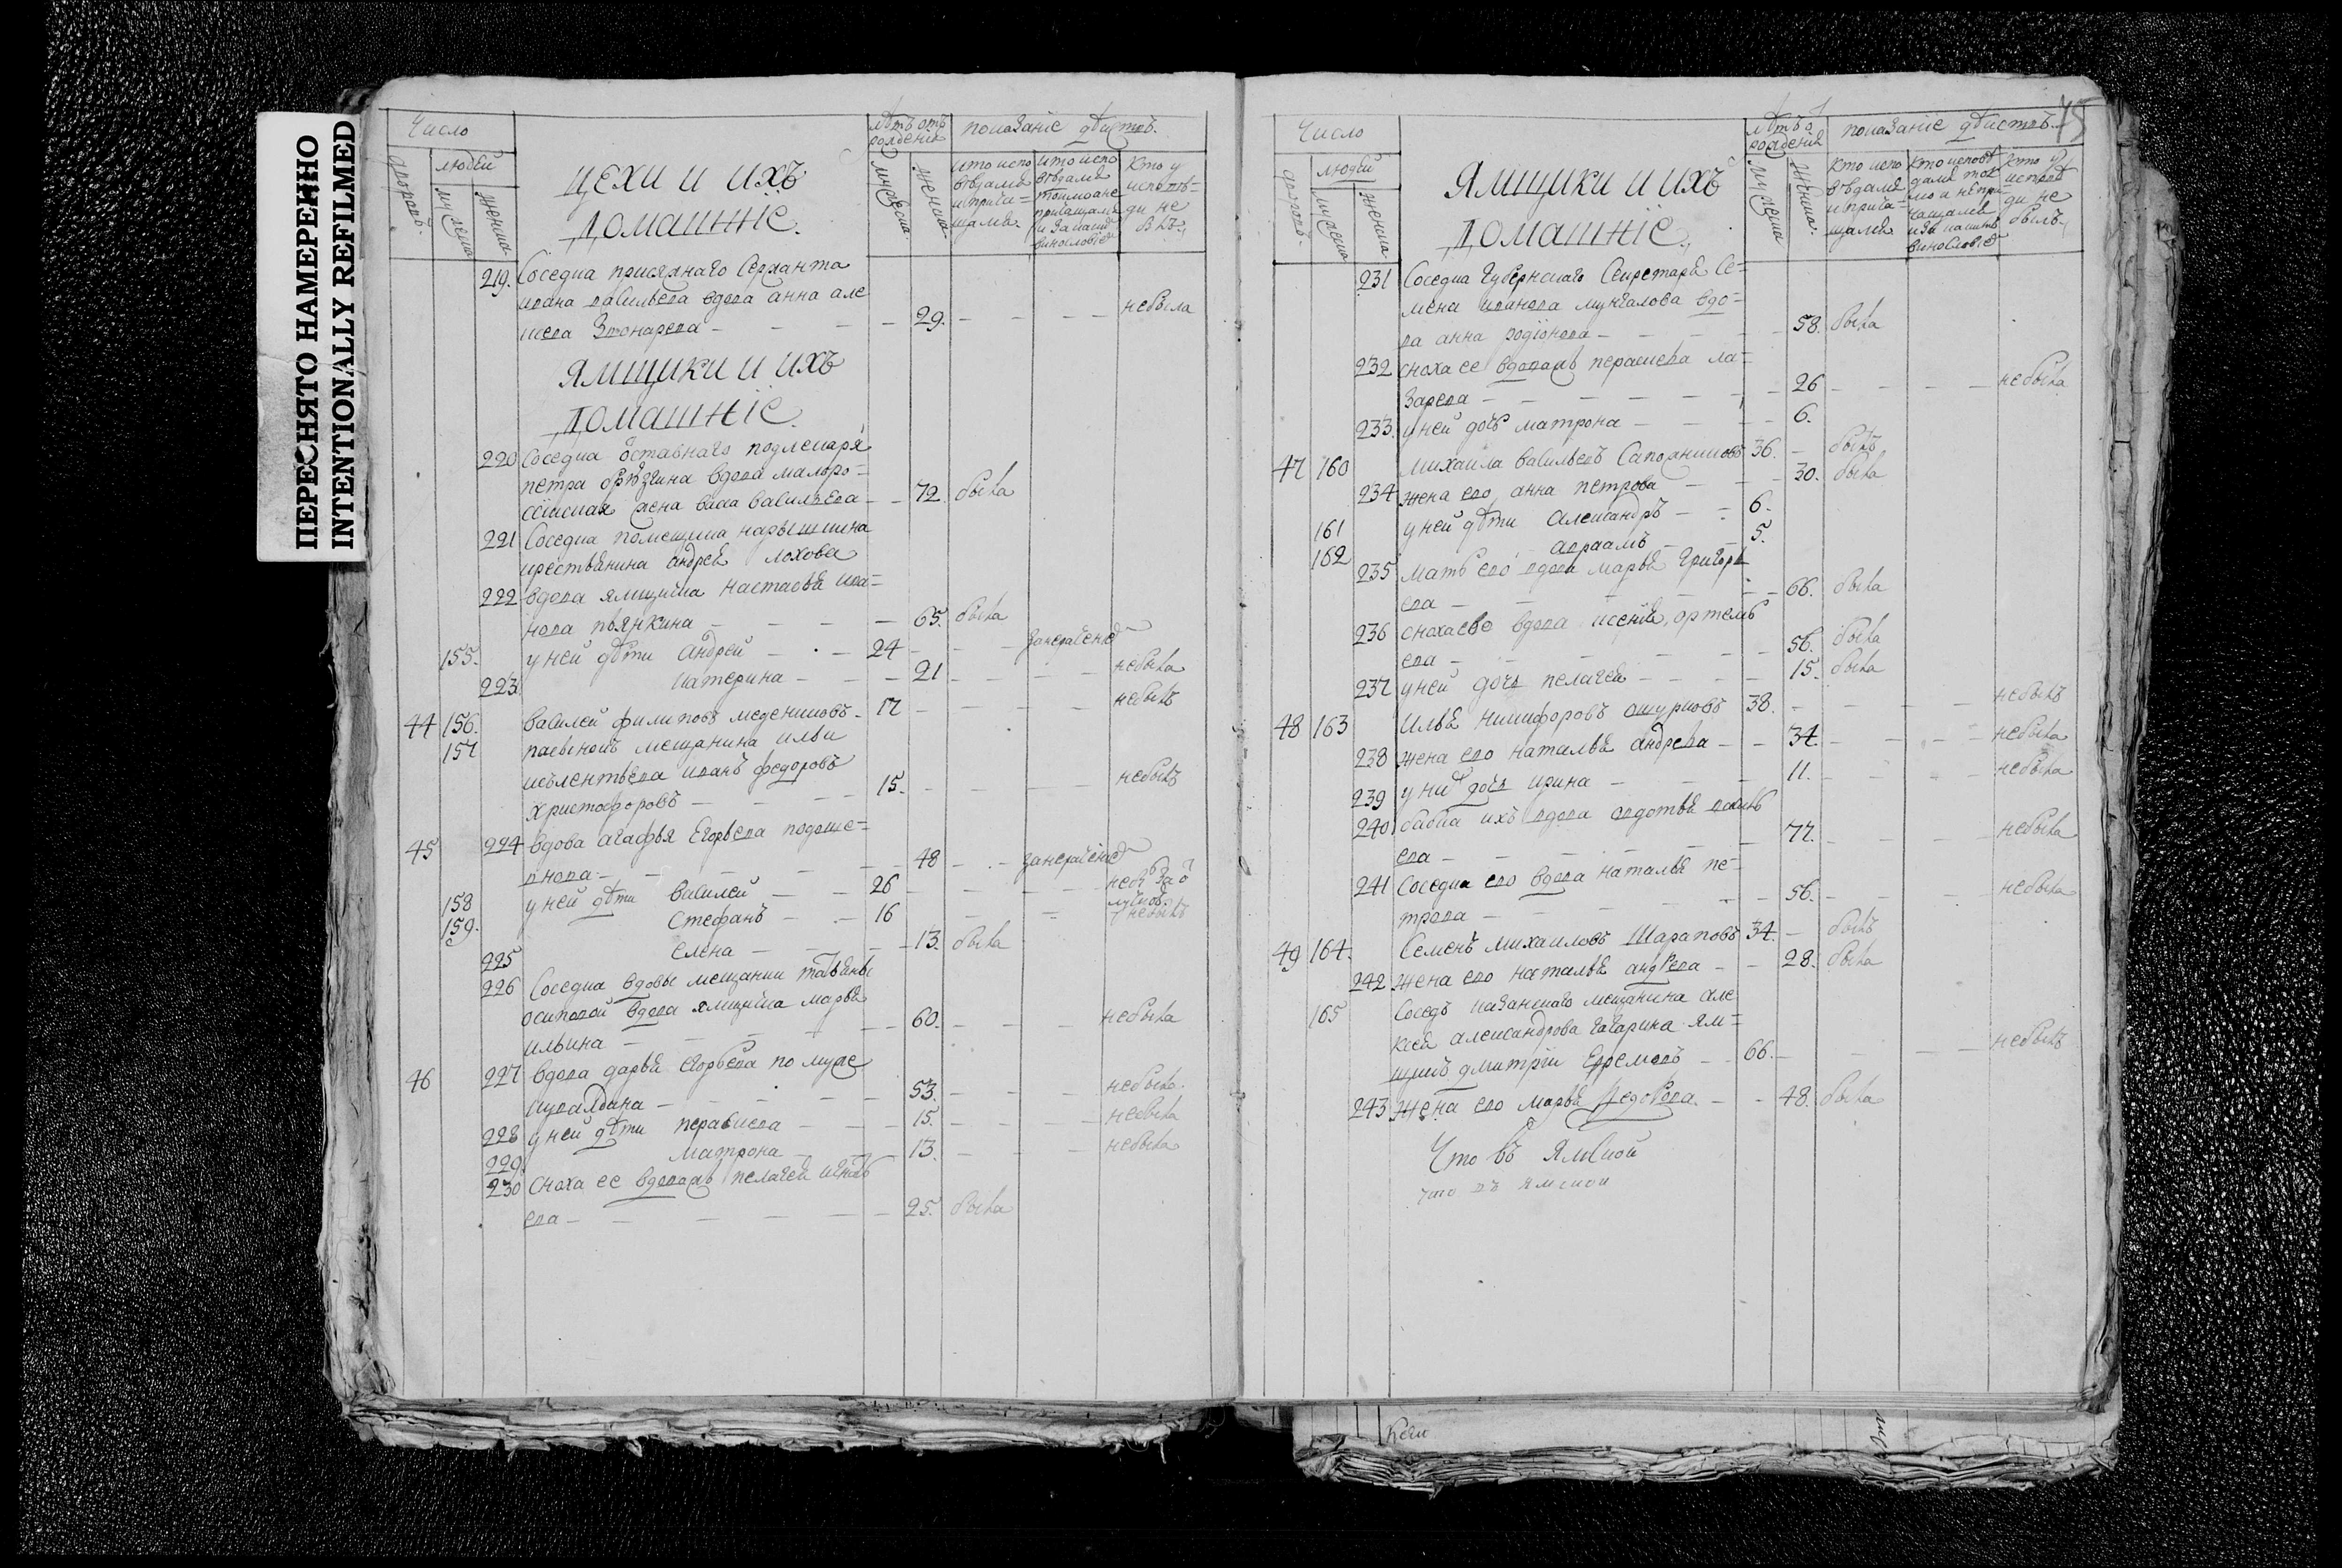 ПЕРЕСНЯТО НАМЕРЕННО
INTENTIONALLY REFILMED
Число
лѣтъ отъ рожденія
показаніе дѣйствъ.
дворовъ.
людей
мужеска
женска
цехи и ихъ
домашніе.
мужеска
женска
кто испо
вѣдался
и прича=
щался
кто испо
вѣдался
токмо а не
причащался
и за какимъ
винословіе
кто у
исповѣ=
ди не
былъ
219. Соседка присяжнаго Сержанта
ивана васильева вдова анна але
29. небыла
ямщики и ихъ
домашніе.
220 Соседка отставнаго подлекаря
петра вдова малоро=
сійская жена васильева 72. была
221 Соседка помещика нарышкина
крестьянина андрея лохова
222 вдова ямщичка настасья ива=
нова пьянкина 65. была
155. у ней дѣти андрей 24
223 катерина 21 небыла
44 156. василей филиповъ меденниковъ 17 небылъ
157 мещанина ильи
иванъ федоровъ
христофоровъ 15. небылъ
45 224 вдова агафья Егорьева подоше=
48
158 у ней дѣти василей 26
159. стефанъ 16 небылъ
225 елена 13. была
226 Соседка вдовы мещанки татьяны
осиповой вдова ямщичка марья
ильина 60. небыла
46 227 вдова дарья егорьева по муже
53. небыла
228 у ней дѣти парасковья 15. небыла
229. матрона 13. небыла
230 сноха ее вдова пелагея игнать
ева 25. была
Число
лѣтъ о рожденія
показаніе дѣйствъ.
75
дворовъ.
людей
мужеска
женска
ямщики и ихъ
домашніе.
мужеска
женска
кто испо
вѣдался
и прича=
щался
кто исповѣ
дался ток
мо а непри=
чащался
и за какимъ
винословіе
кто у
исповѣ
ди не
былъ
231 Соседка Губернскаго Секретаря Се=
мена иванова мунгалова вдо=
ва анна родіонова 58. была
232 сноха ее вдова ла=
зарева 26 небыла
233. у ней дочь матрона 6.
47 160 михаила васильевъ Сапожниковъ 36. былъ
234 жена его анна петрова 30. была
161 у ней дѣти александръ 6.
162 авраамъ 5.
235 мать его вдова марья григорь
ева 66. была
236 сноха ево вдова ксенія артемь
ева 56. была
237 у ней дочь пелагея 15. была
48 163 Илья никифоровъ ошурковъ 38. небылъ
238 жена его наталья андреева 34. небыла
239 у ни дочь ирина 11. небыла
240 бабка ихъ вдова авдотья
ева 77. небыла
241 Соседка его вдова наталья пе=
трова 56. небыла
49 164. Семенъ михаиловъ Шараповъ 34. былъ
242 жена его наталья андреева 28. была
165 Соседъ казанскаго мещанина але
ксея александрова гагарина ям=
щикъ дмитрій Ефремовъ 66. небылъ
243 жена его марья Федорова 48. была
Что въ ямской
что въ ямской